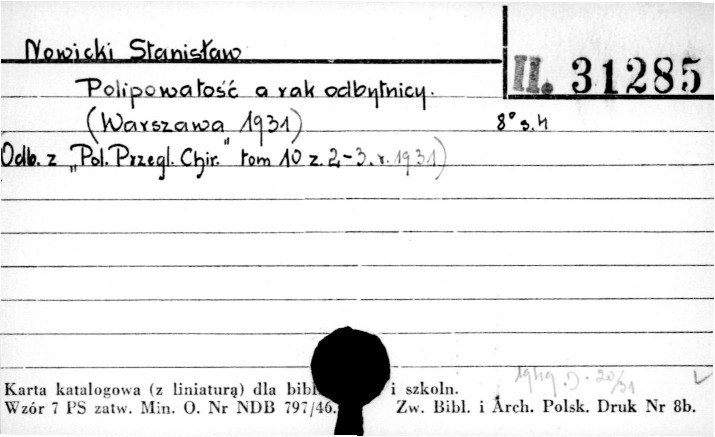 Nowicki Stanisław
II. 31285
Polipowatość a rak odbytnicy.
(Warszawa 1931)
8° s. 4
Odb. z „Pol. Przegl. Chir." tom 10 z. 2-3. r. 1931)
Karta katalogowa (z liniaturą) dla bibl i szkoln.
Wzór 7 PS zatw. Min. O. Nr NDB 797/46. Zw. Bibl. i Arch. Polsk. Druk Nr 8b.